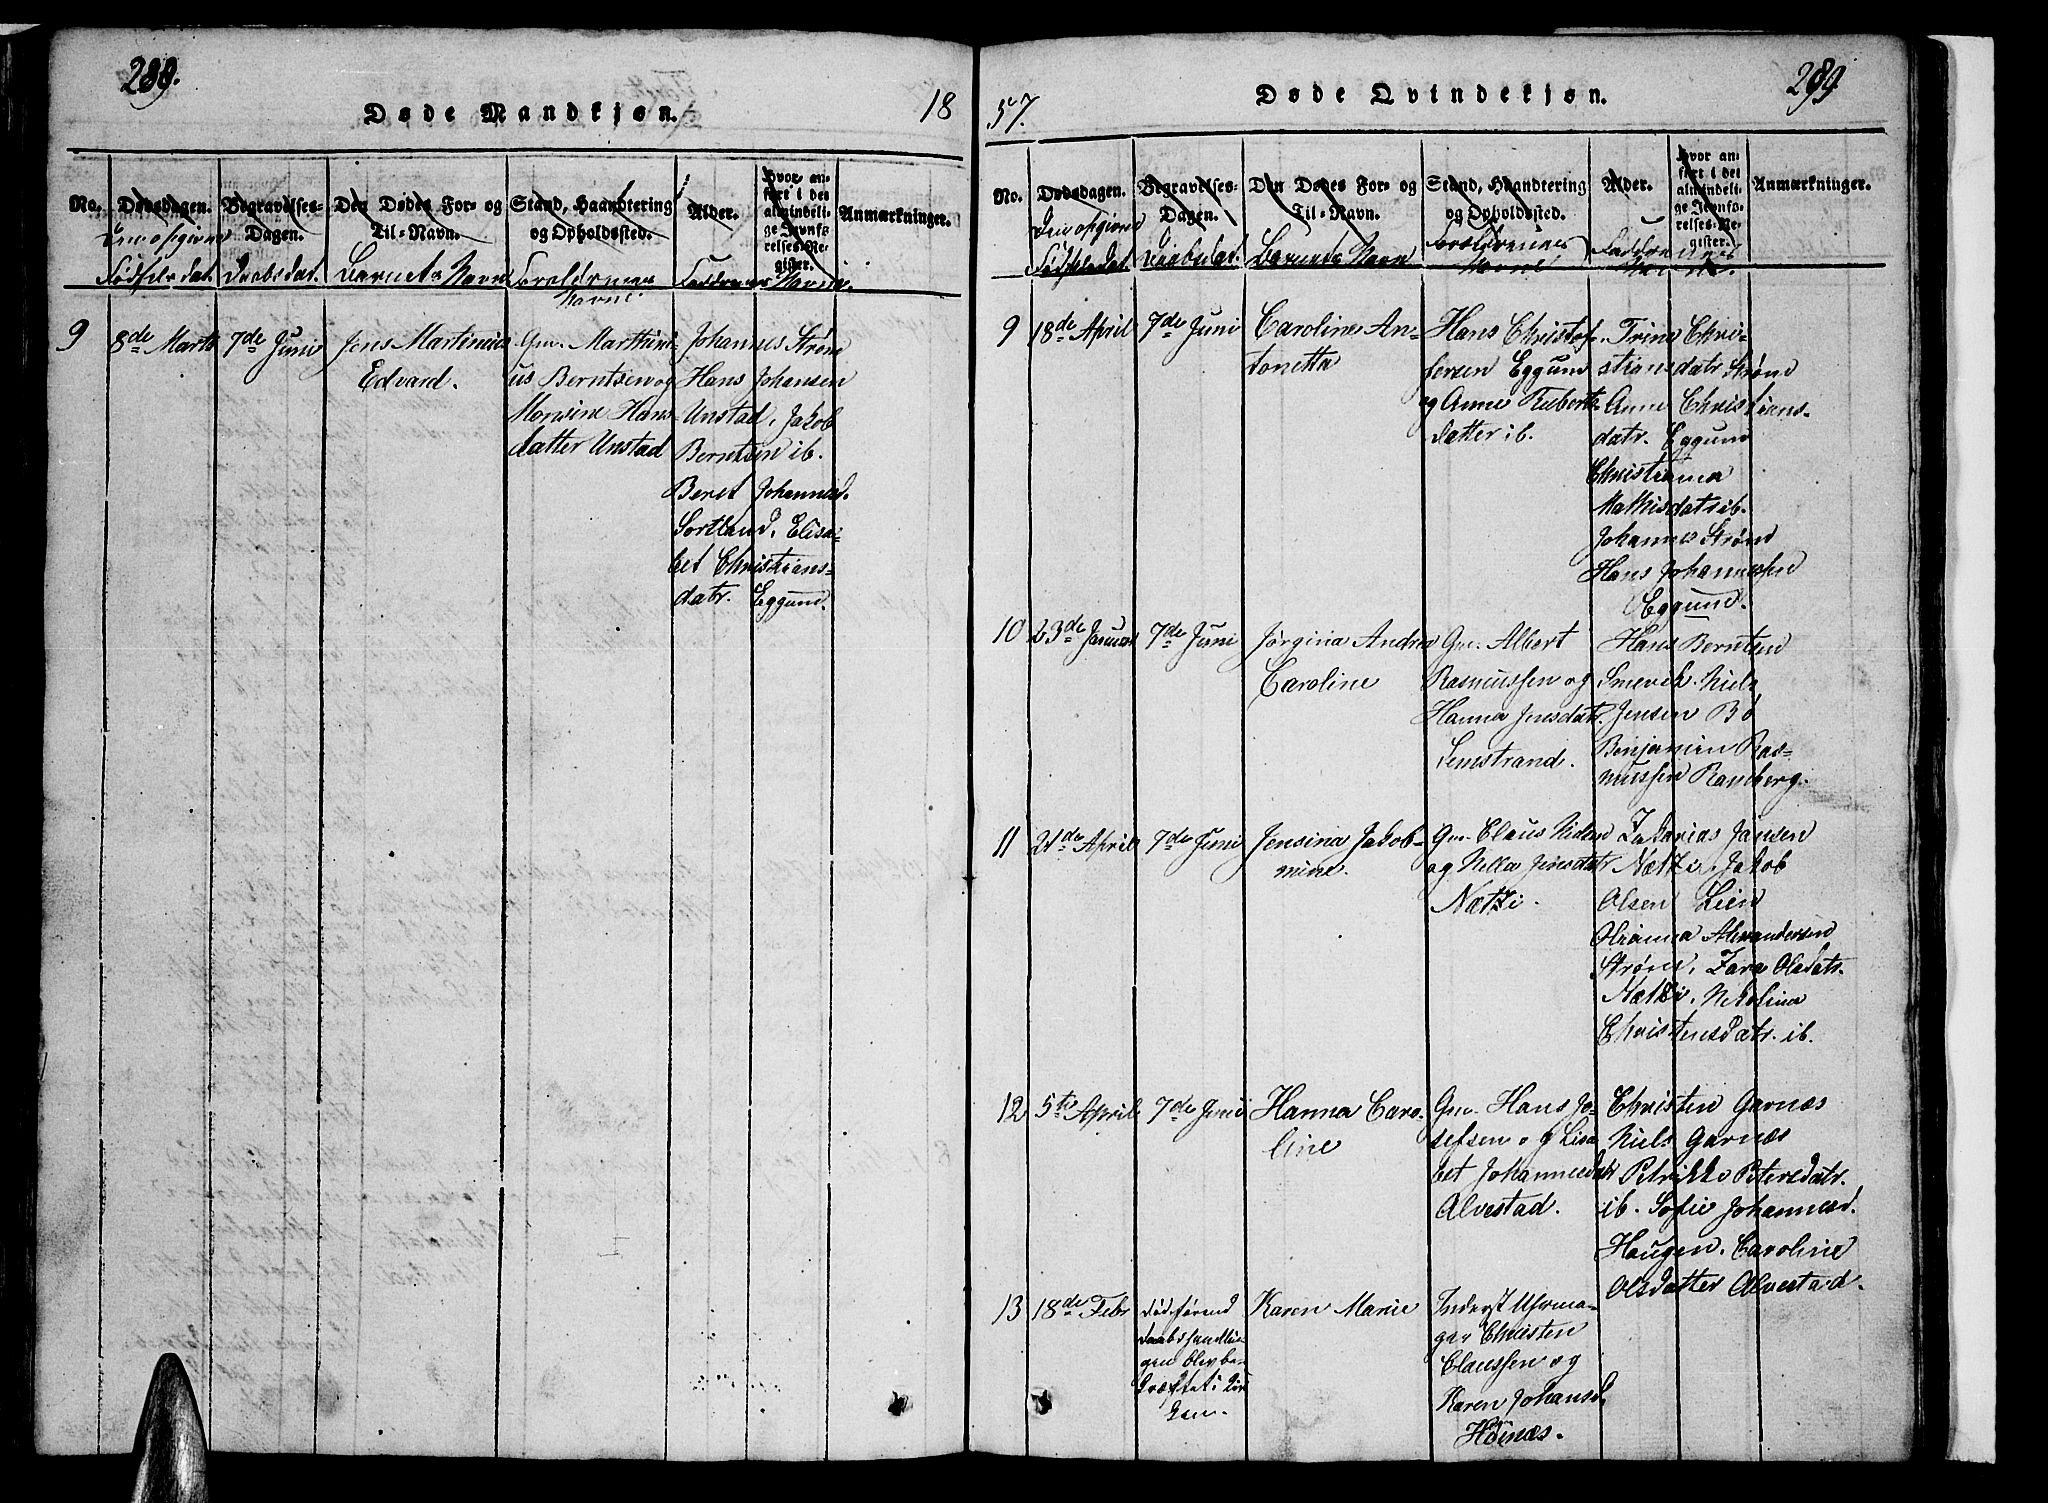 289.
Døde Mandkjøn.
18
No.
Dødsdagen.
Begravelses-
Dagen.
Den Dødes For- og
Til-Navn.
Stand, Haandtering
og Opholdssted.
Alder.
Hvor an-
ført i det
almindeli-
ge Jevnfø-
relses-Re-
gister.
Anmærkninger.
Den opgivne
Fødselsdat.
Daabsdat.
Barnets Navn
Forældrenes
Navne
Faddernes Navne.
9
8de Marts
7de Juni
Jens Martinius
Edvard.
Gm. Marthini-
us Berntsen og
Monsine Hans-
datter Unstad
Johannes Strøm
Hans Johansen
Unstad, Jakob
Berntsen ib.
Beret Johannesd.
Sortland, Elisa-
bet Christians-
datr. Eggum.
57.
Døde Qvindekjøn.
289
No.
Dødsdagen.
Begravelses-
Dagen.
Den Dødes For- og
Til-Navn.
Stand, Haandtering
og Opholdssted.
Alder.
Hvor an-
ført i det
almindeli-
ge Jevnfø-
relses-Re-
gister.
Anmærkninger.
Den opgivne
Fødselsdat.
Daabsdat.
Barnets Navn
Forældrenes
Navne
Faddernes
Navne.
9
18de April
7de Juni
Caroline An-
tonetta
Hans Christof-
fersen Eggum
og Anne Ruberts-
datter ib.
Trine Chri-
stiansdatr Strøm
Anne Christians-
datr. Eggum
Christianna
Mathisdatr ib.
Johannes Strøm
Hans Johannessen
Eggum.
10
23de Januar
7de Juni
Jørgina Andrea
Caroline
Gm. Albert
Rasmussen og
Hanna Jensdatr.
Lenestrand.
Hans Berntsen
Smevik. Niels
Jensen Bø
Benjamin Ras-
mussen Ramberg.
11
21de April
7de Juni
Jensina Jakob-
mine.
Gm. Claus Nielsen
og Nella Jensdatr
Nætzi.
Zakarias Jansen
Nætzi. Jakob
Olsen Lien
Olianna Alexandersen
Strøm, Zara Olsdatr.
Nætzi. Nikolina
Christensdatr. ib.
12
5te April
7de Juni
Hanna Caro-
line
Gm. Hans Jo-
sefsen og Lisa-
bet Johannesdatr
Alvestad.
Christen Garnæs
Niels Garnæs
Petrikke Petersdatr.
ib. Sofie Johannesd.
Haugen. Caroline
Olsdatter Alvestad.
13
18de Febr
død førend
Daabshandlin-
gen blev be-
kræftet i Kir-
ken.
Karen Marie
Inderst Uformu-
gen Christen
Claussen og
Karen Johansd.
Hornæs.